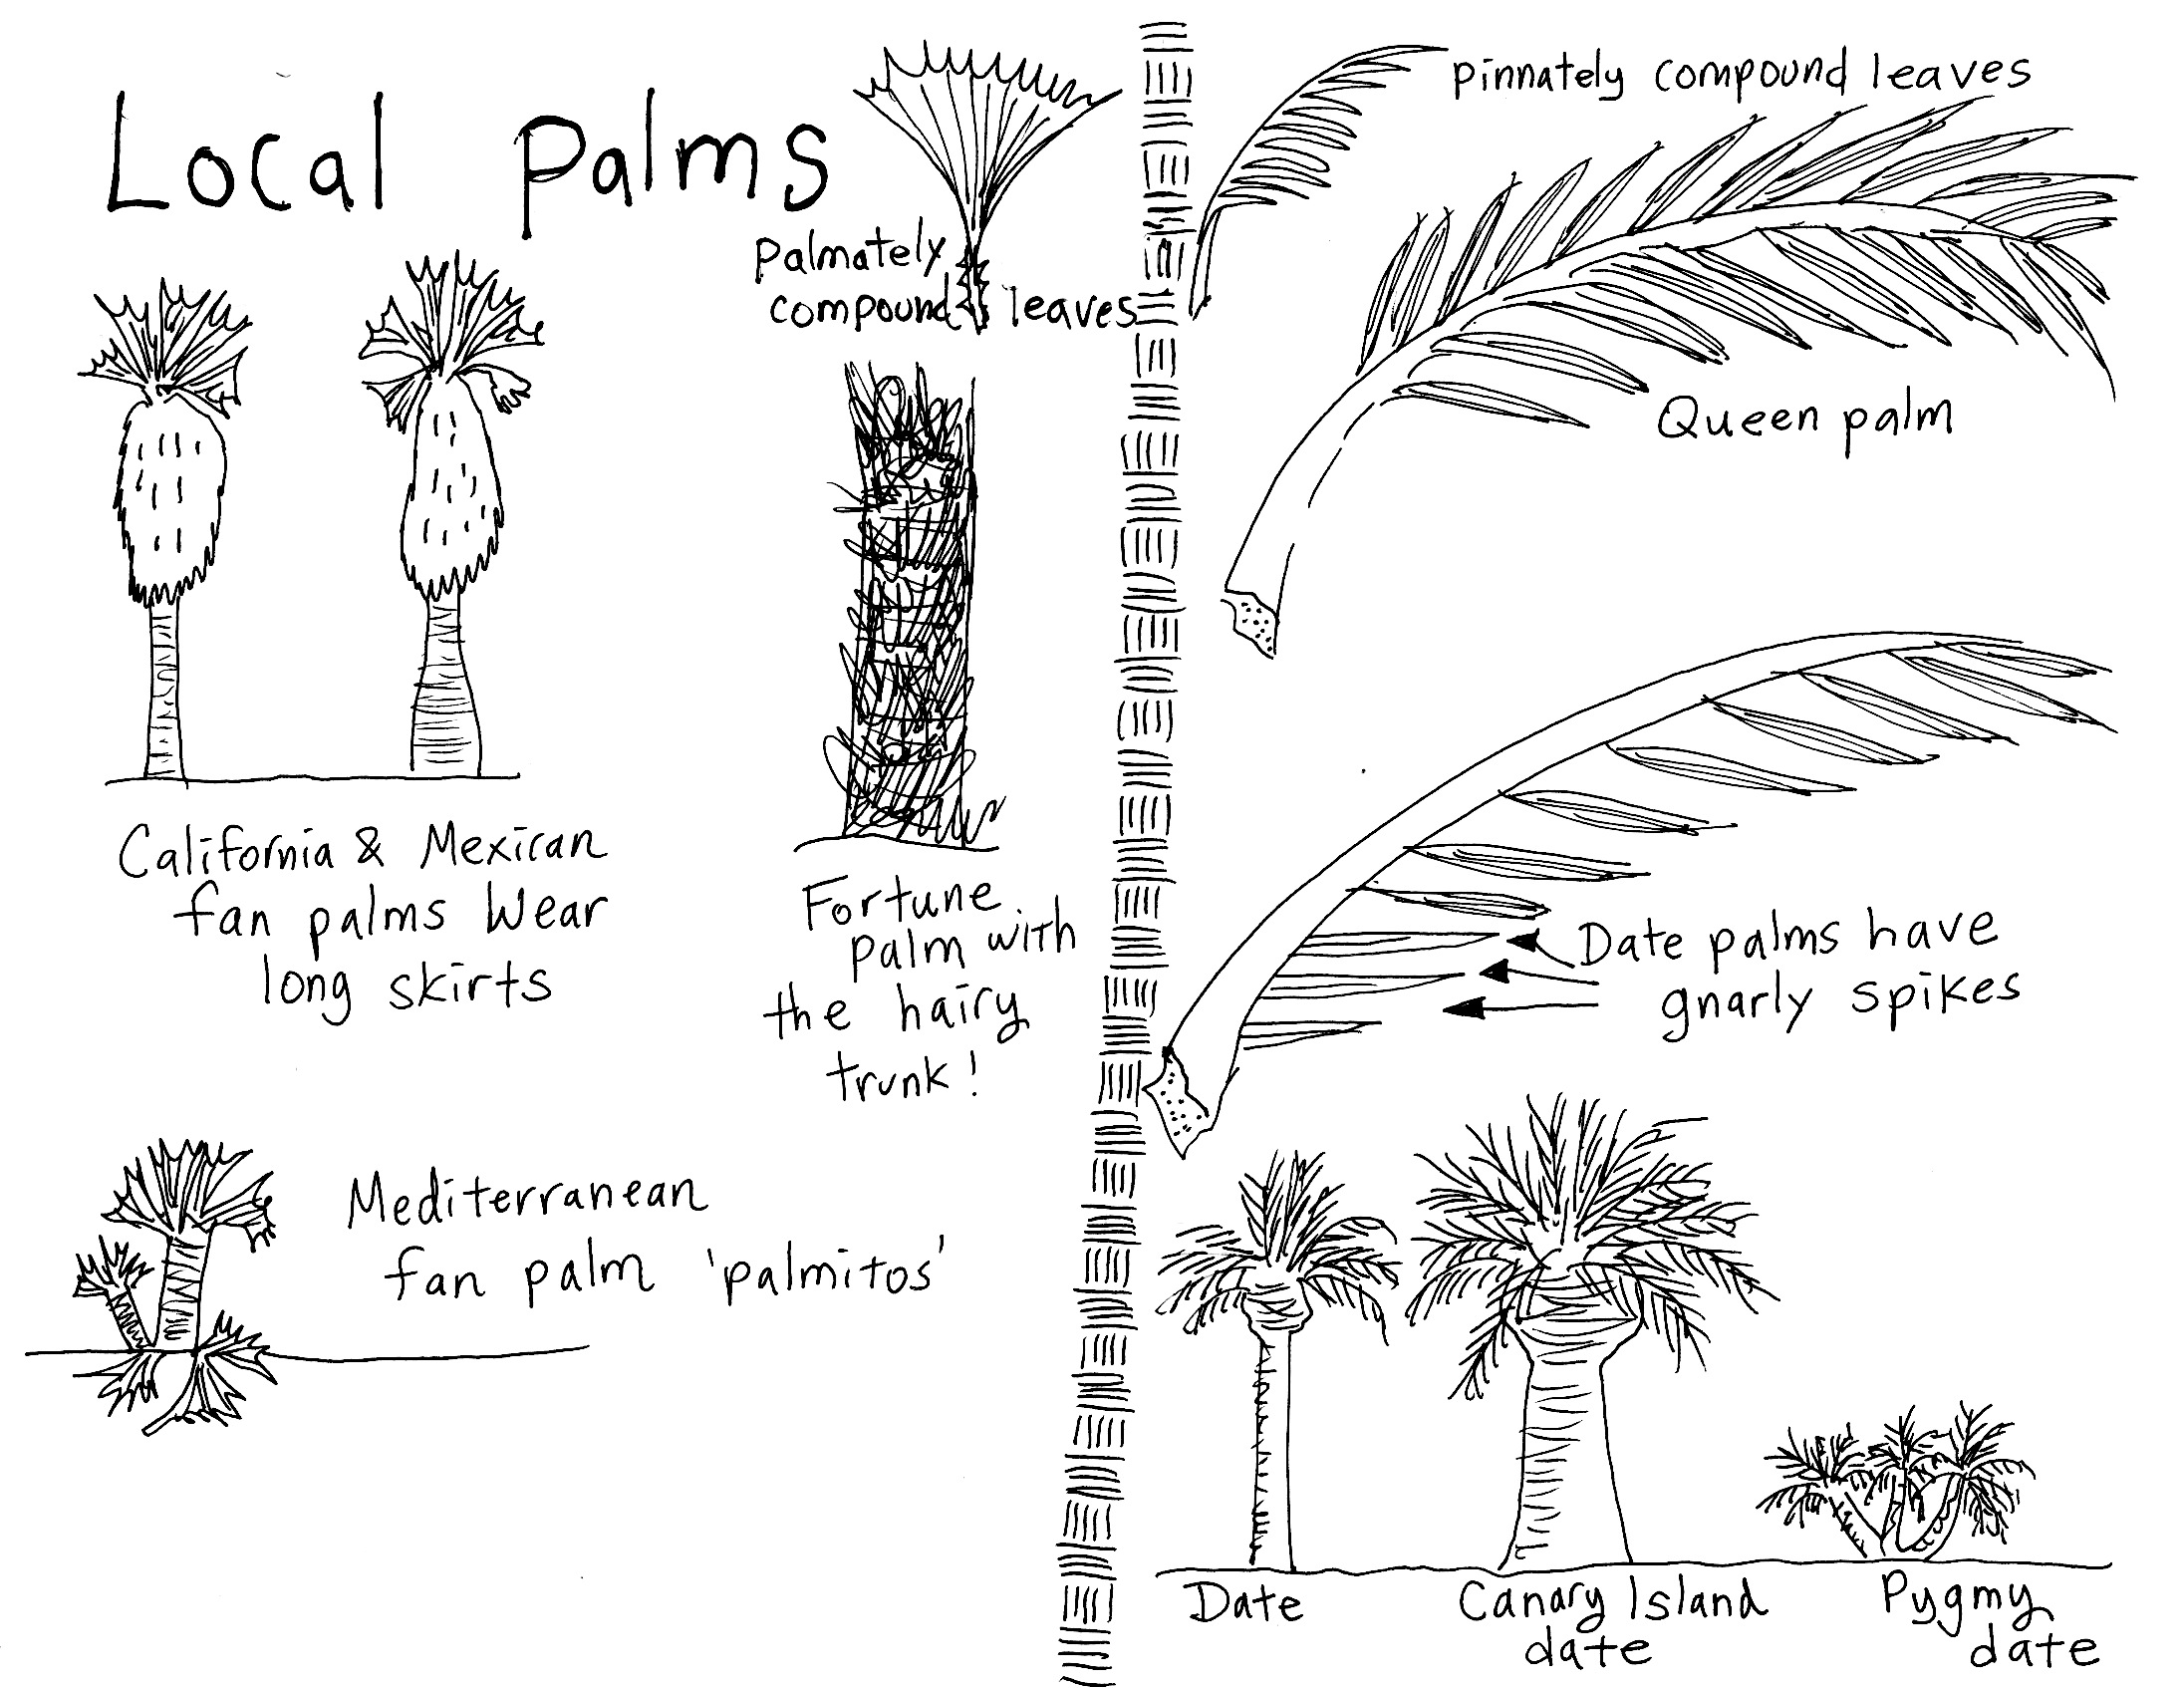 Local Palms
Palmately
compound leaves
California & Mexican
fan palms Wear
long skirts
Fortune
palm with
the hairy
trunk!
Mediterranean
fan palm 'palmitos'
pinnately compound leaves
Queen palm
Date palms have
gnarly spikes
Date
Canary Island
date
Pygmy
date